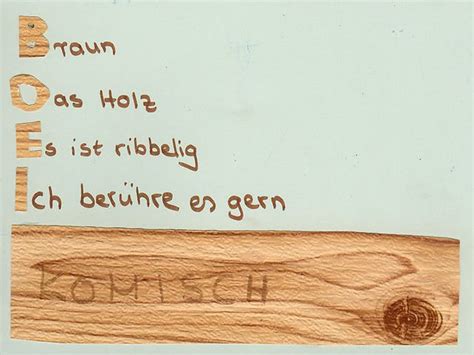 Braun
Das Holz
Es ist ribbelig
Ich berühre es gern
KOMISCH